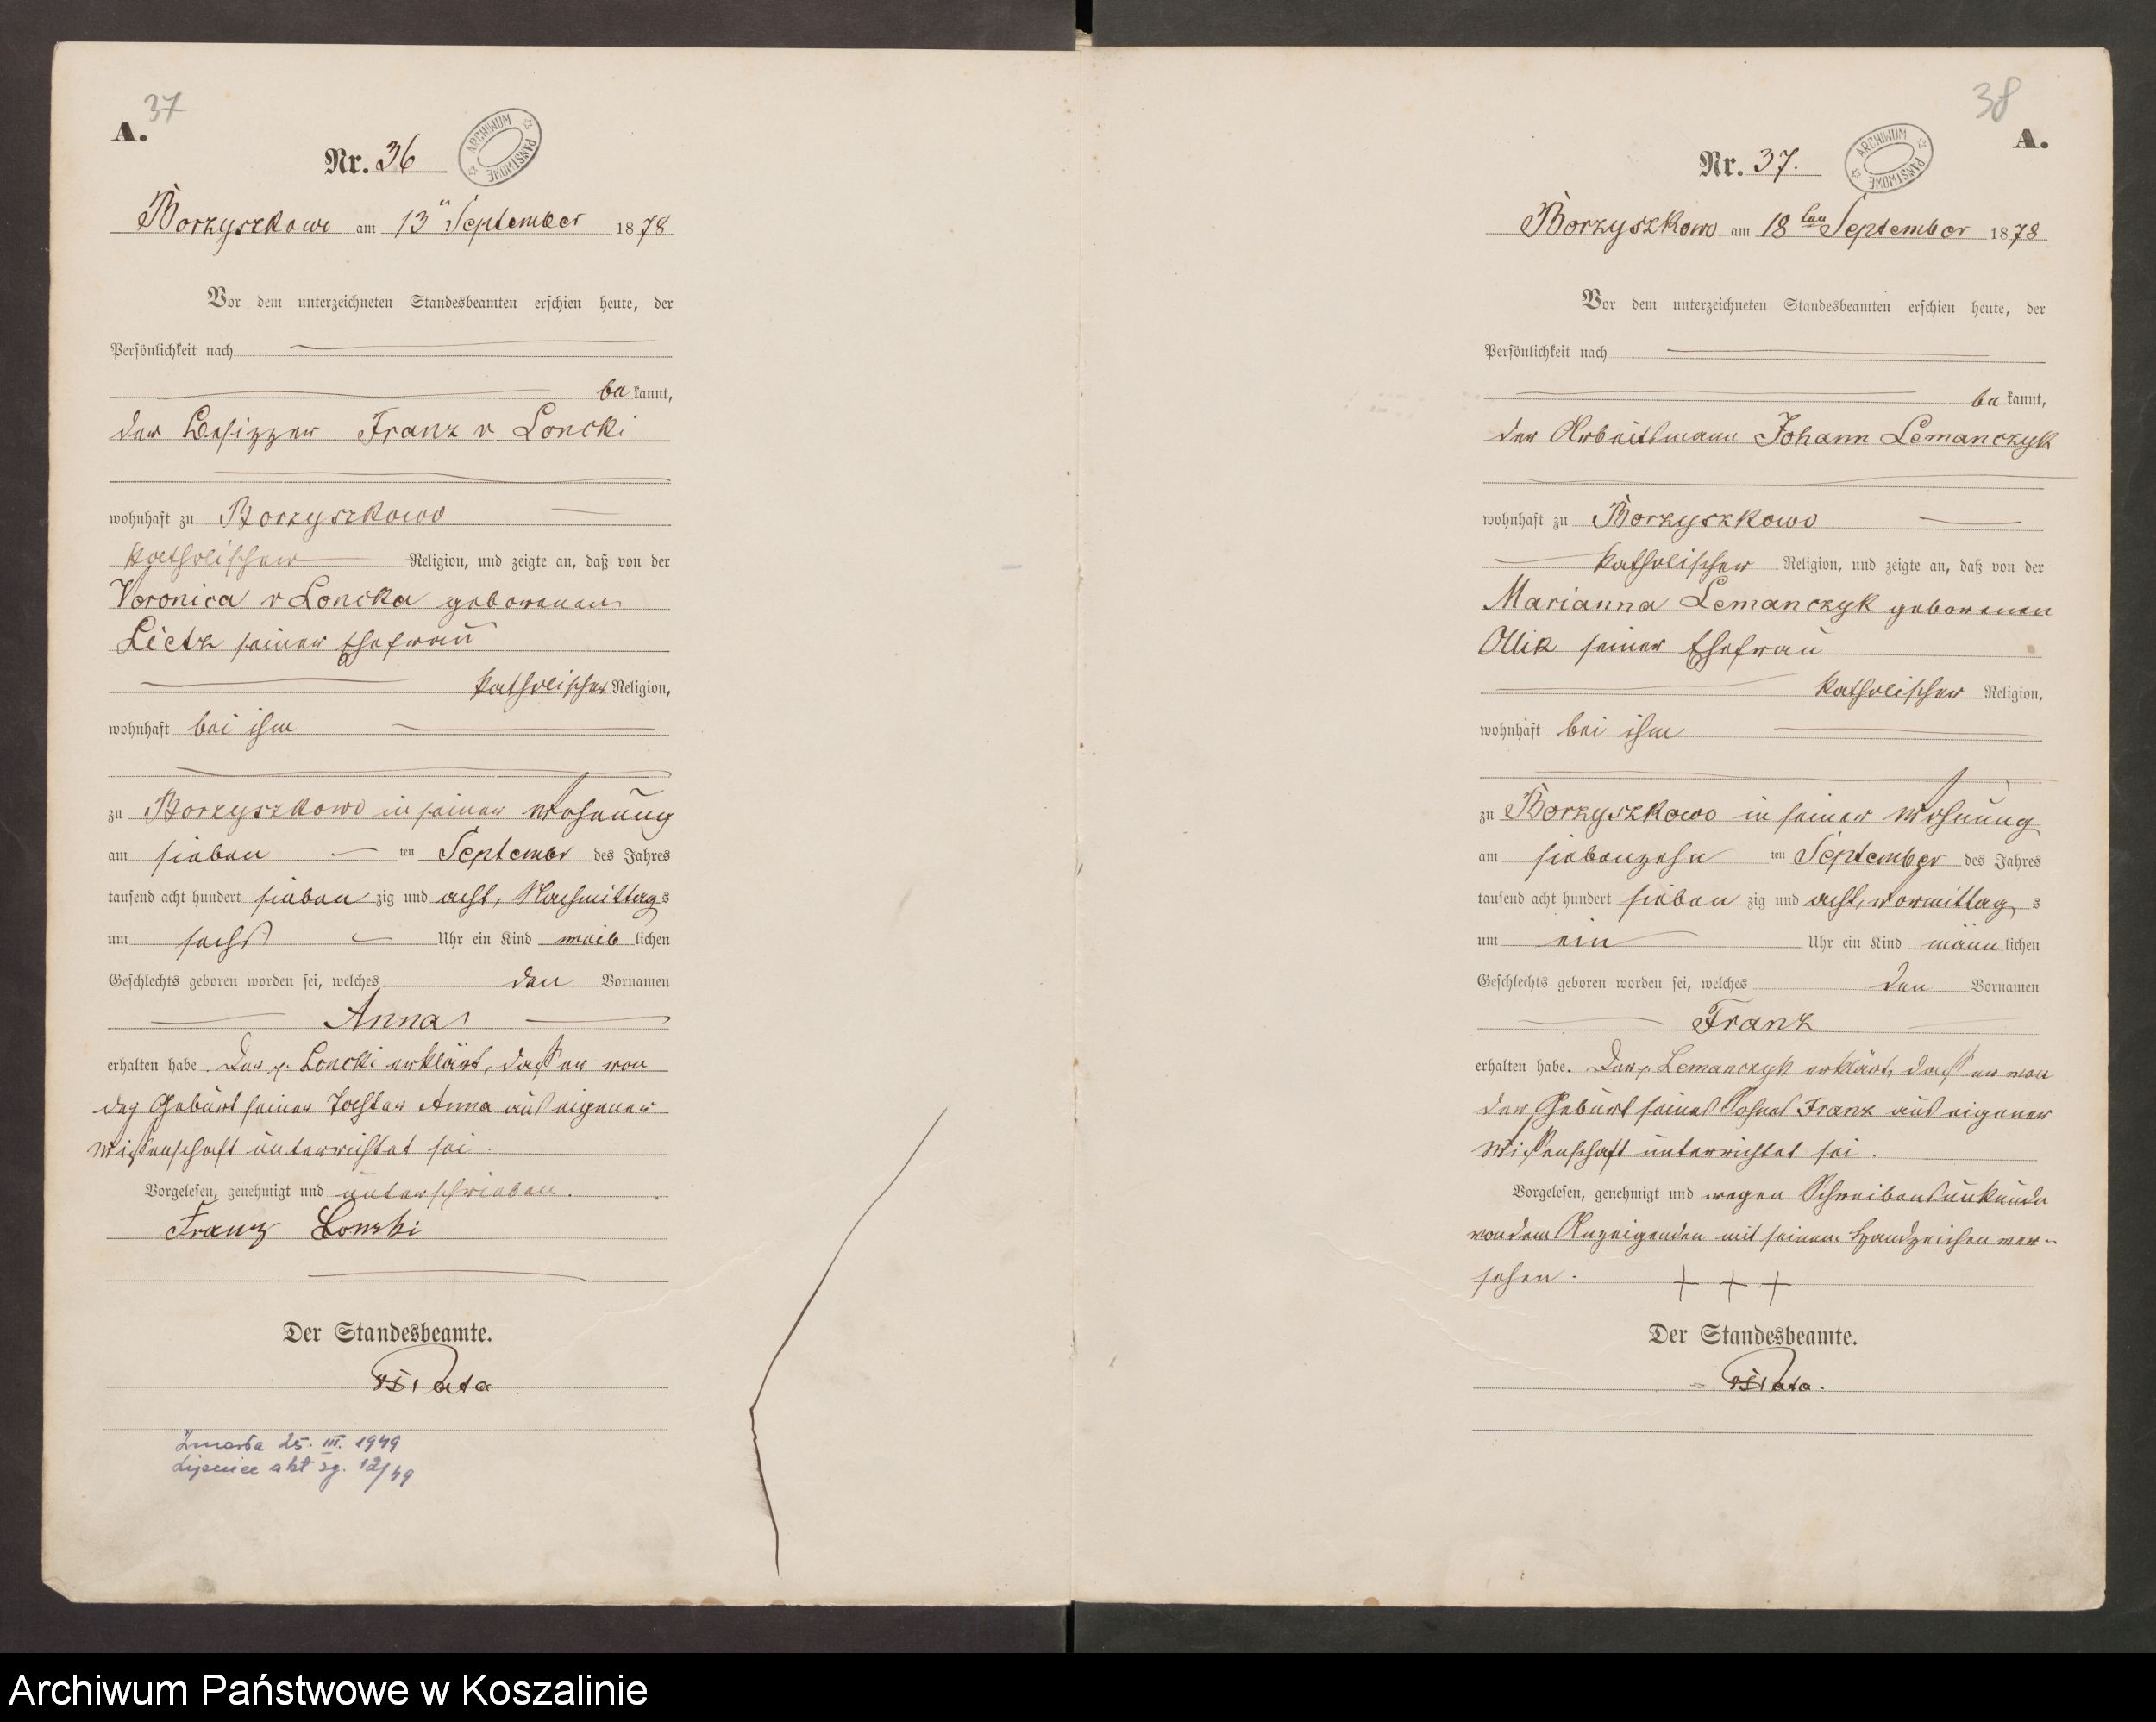 37
A.
Nr. 36
ARCHIWUM PAŃSTWOWE
Borzyszkowo am 13 September 1878
Vor dem unterzeichneten Standesbeamten erschien heute, der
Persönlichkeit nach
bekannt,
der Besitzer Franz v Loncki
wohnhaft zu Borzyszkowo
katholischer Religion, und zeigte an, daß von der
Veronica v Loncka geborenen
Lietz seiner Ehefrau
katholischer Religion,
wohnhaft bei ihm
zu Borzyszkowo in seiner Wohnung
am sieben ten September des Jahres
tausend acht hundert sieben zig und acht, Nachmittags
um sechs Uhr ein Kind weiblichen
Geschlechts geboren worden sei, welches den Vornamen
Anna
erhalten habe. Der p. Loncki erklärt, daß er von
der Geburt seiner Tochter Anna aus eigener
Wissenschaft unterrichtet sei.
Vorgelesen, genehmigt und unterschrieben.
Franz Lonski
Der Standesbeamte.
Zmarła 25. III. 1949
Lipnice akt zg. 12/49
38
A.
Nr. 37.
ARCHIWUM PAŃSTWOWE
Borzyszkowo am 18ten September 1878
Vor dem unterzeichneten Standesbeamten erschien heute, der
Persönlichkeit nach
bekannt,
der Arbeitsmann Johann Lemanczyk
wohnhaft zu Borzyszkowo
katholischer Religion, und zeigte an, daß von der
Marianna Lemanczyk geborenen
Ollik seiner Ehefrau
katholischer Religion,
wohnhaft bei ihm
zu Borzyszkowo in seiner Wohnung
am siebenzehn ten September des Jahres
tausend acht hundert sieben zig und acht, vormittags
um ein Uhr ein Kind männlichen
Geschlechts geboren worden sei, welches den Vornamen
Franz
erhalten habe. Der p. Lemanczyk erklärt, daß er von
der Geburt seines Sohnes Franz aus eigener
Wissenschaft unterrichtet sei.
Vorgelesen, genehmigt und wegen Schreibensunkunde
von dem Anzeigenden mit seinem Handzeichen ver-
sehen. + + +
Der Standesbeamte.
Archiwum Państwowe w Koszalinie